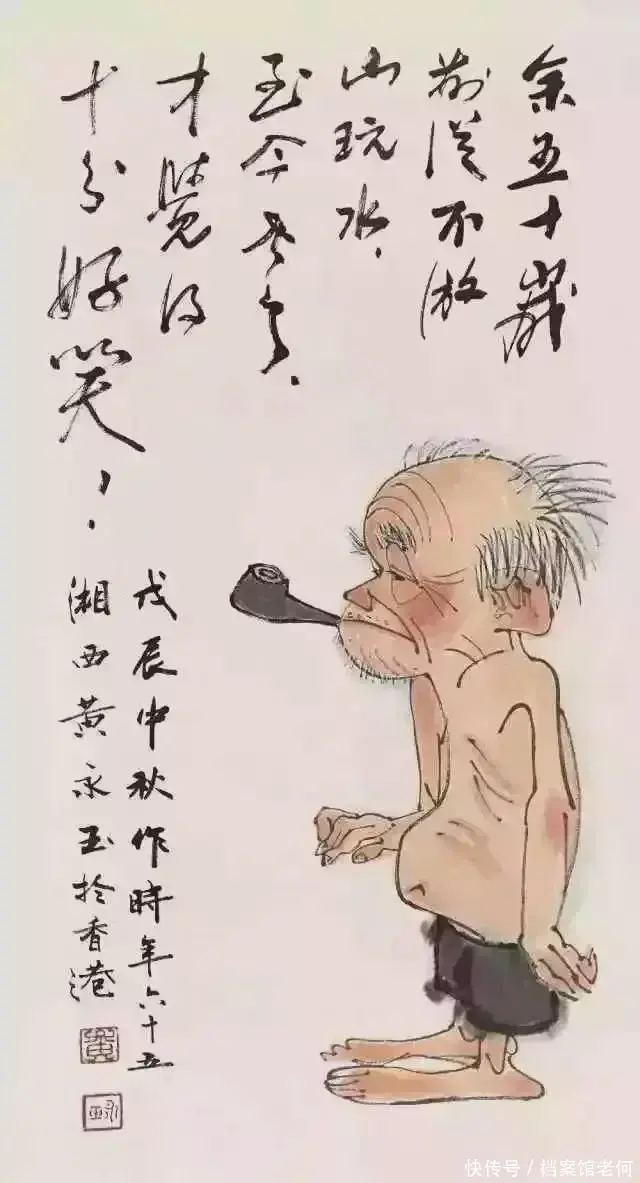 余五十歲
前從不游
山玩水、
至今老矣、
才覺得
十分好笑！
戊辰中秋作時年六十五
湘西黃永玉於香港
黃
快传号/档案馆老何